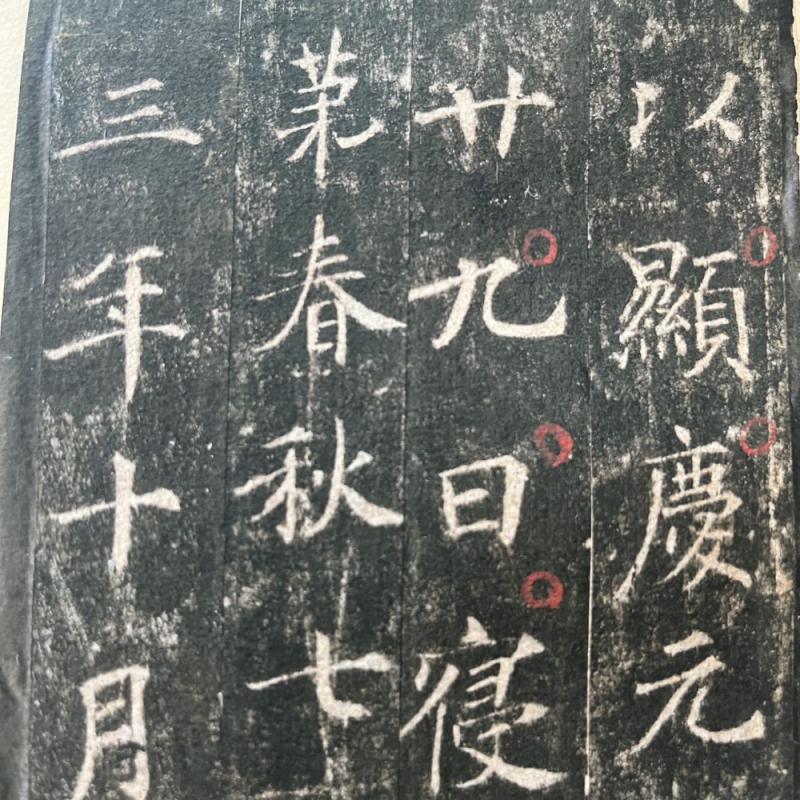 以顯慶元
廿九日寢
苐春秋七
三年十月